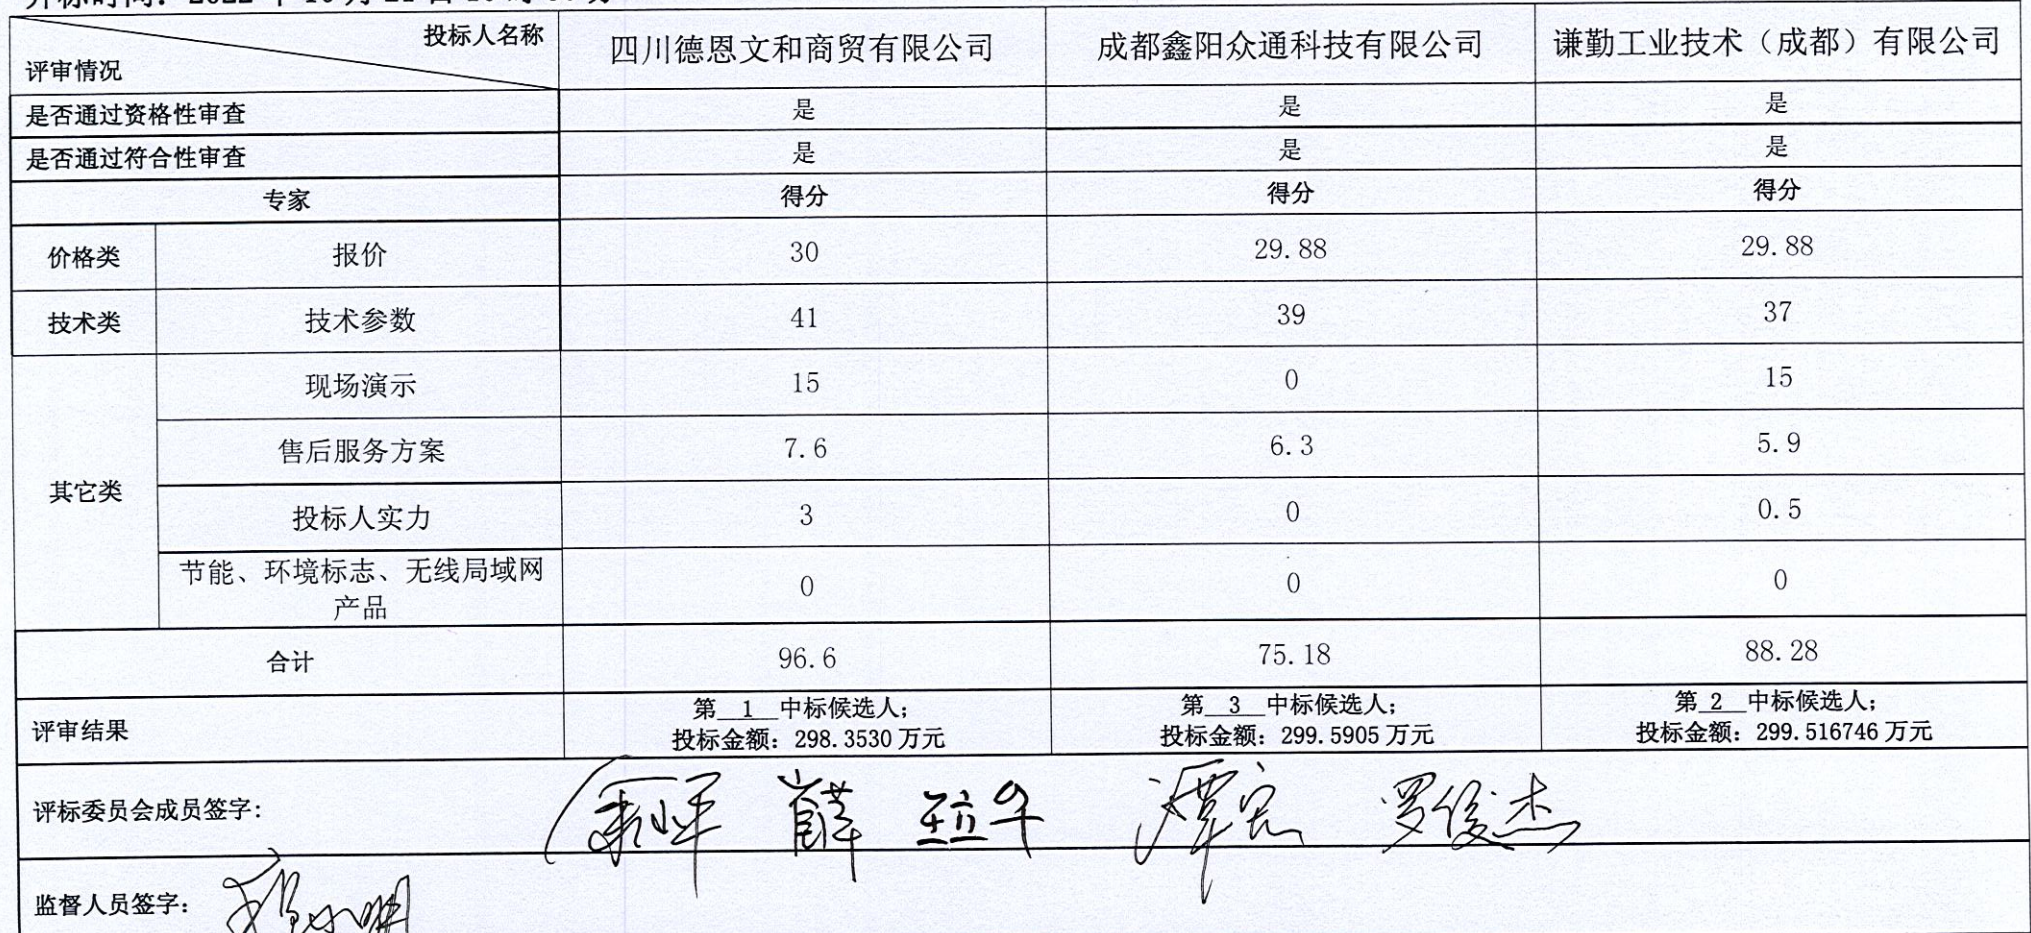 投标人名称
评审情况
四川德恩文和商贸有限公司
成都鑫阳众通科技有限公司
谦勤工业技术（成都）有限公司
是否通过资格性审查 是 是 是
是否通过符合性审查 是 是 是
专家 得分 得分 得分
价格类 报价 30 29.88 29.88
技术类 技术参数 41 39 37
其它类
现场演示 15 0 15
售后服务方案 7.6 6.3 5.9
投标人实力 3 0 0.5
节能、环境标志、无线局域网
产品
0 0 0
合计 96.6 75.18 88.28
评审结果
第__1__中标候选人；
投标金额：298.3530 万元
第__3__中标候选人；
投标金额：299.5905 万元
第_2__中标候选人；
投标金额：299.516746 万元
评标委员会成员签字： 罗俊杰
监督人员签字：